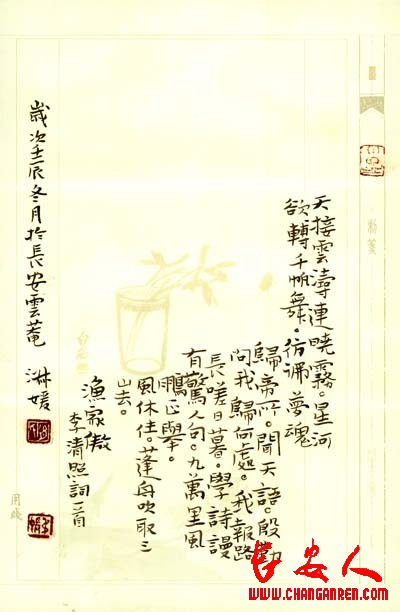 天接雲濤連曉霧。星河
欲轉千帆舞。彷彿夢魂
歸帝所。聞天語。殷勤
問我歸何處。我報路
長嗟日暮。學詩謾
有驚人句。九萬里風
鵬正舉。
風休住。蓬舟吹取三
山去。
漁家傲
李清照詞一首
歲次壬辰冬月於長安雲菴 淋媛
长安人
WWW.CHANGANREN.COM